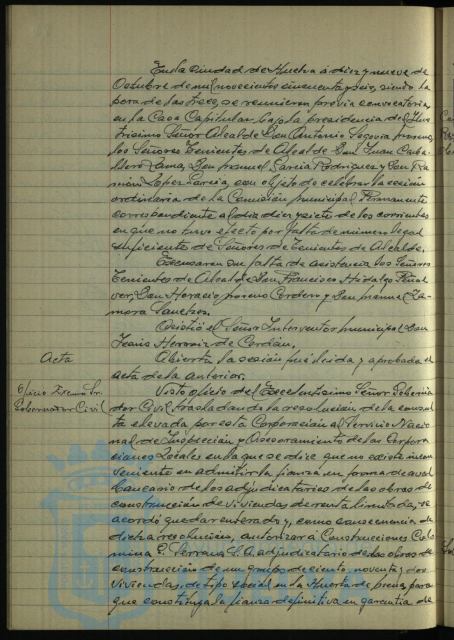 En la ciudad de Huelva a diez y nueve de
Octubre de mil novecientos cincuenta y seis, siendo la
hora de las trece, se reunieron previa convocatoria,
en la Casa Capitular, bajo la presidencia del Ilus-
trísimo Señor Alcalde Don Antonio Segovia Moreno,
los Señores Tenientes de Alcalde Don Juan Ceba-
llero Zama, Don Manuel Garcia Rodriguez y Don Ra-
món Lopez Garcia, con objeto de celebrar la sesión
ordinaria de la Comisión Municipal Permanente
correspondiente al dia diez y siete de los corrientes
en que no tuvo efecto por falta de número legal
suficiente de Señores de Tenientes de Alcalde.
Excusaron su falta de asistencia los Señores
Tenientes de Alcalde Don Francisco Hidalgo Peñal-
ver, Don Horacio Moreno Cordero y Don Manuel Za-
mora Sanchez.
Asistió el Señor Interventor Municipal Don
Jesús Hernaiz de
Acta
Abierta la sesión fué leida y aprobada el
acta de la anterior.
Oficio Excmo Sr.
Gobernador Civil
Visto oficio del Excelentísimo Señor Goberna-
dor Civil, trasladando la resolución de la consul-
ta elevada por esta Corporación al Servicio Nacio-
nal de Inspección y Asesoramiento de las Corpora-
ciones Locales en la que se dice que no existe incon-
veniente en admitir la fianza en forma de aval
bancario de los adjudicatarios de las obras de
construcción de viviendas de renta limitada, se
acordó quedar enterado y, como consecuencia de
dicha resolución, autorizar a Construcciones Colo-
mina G. Serrano S.A. adjudicatario de las obras de
construcción de un grupo de ciento noventa y dos
viviendas, de tipo social en la Huerta de Mena, para
que constituya la fianza definitiva en garantia de